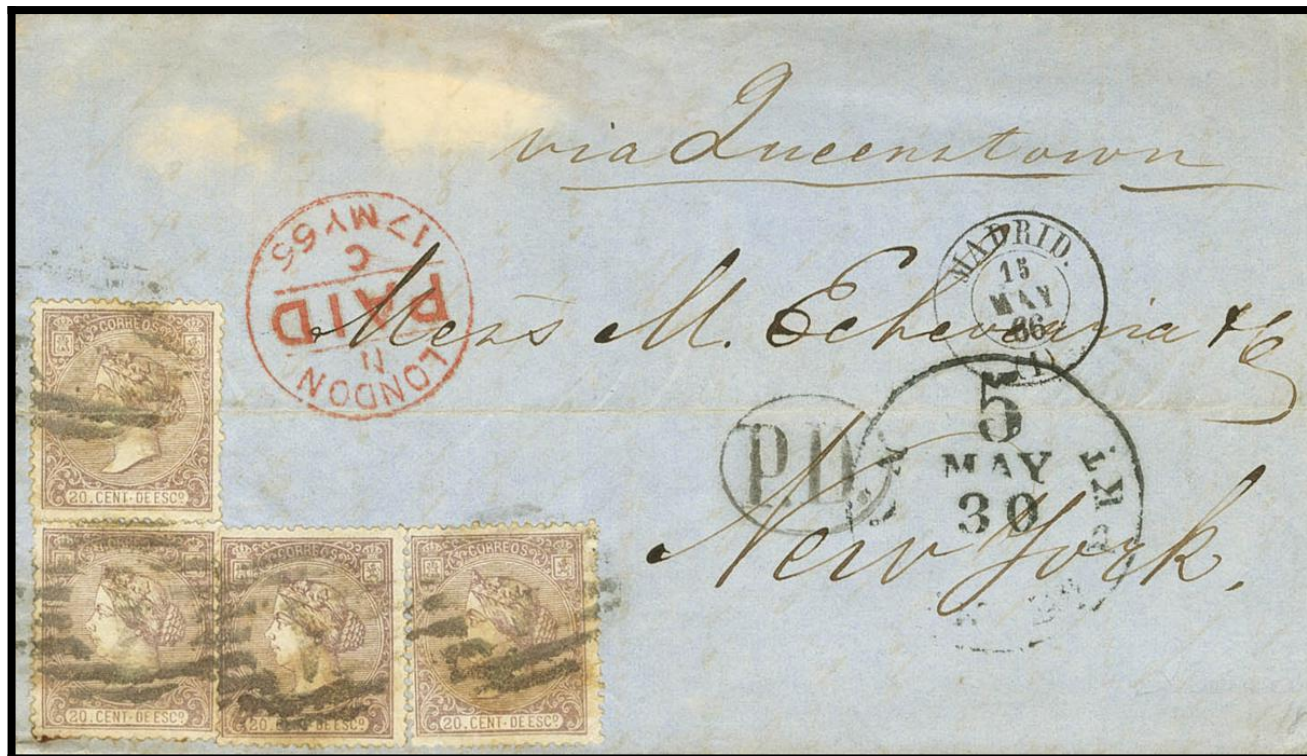 via Queenstown
LONDON
11
PAID
C
17 MY 65
MADRID.
15
MAY
66
(1)
Mess M. Echevarria & Co
5
MAY
30
P.D.
New York.
CORREOS
20. CENT. DE ESCº
CORREOS
20. CENT. DE ESCº
CORREOS
20. CENT. DE ESCº
CORREOS
20. CENT. DE ESCº